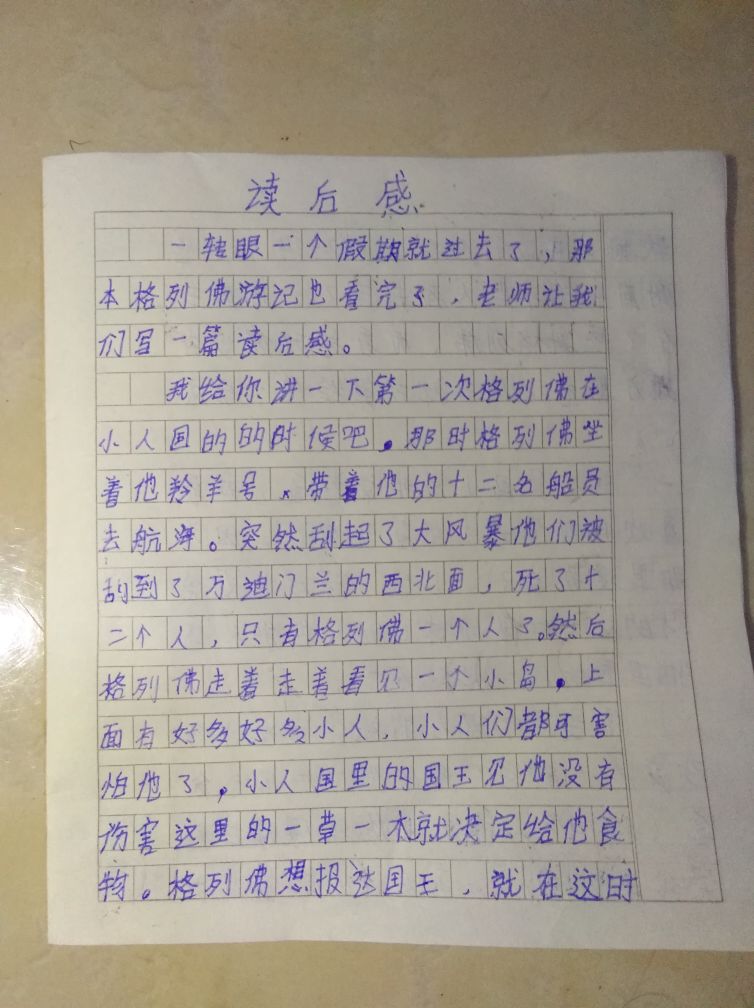 读后感
一转眼一个假期就过去了，那
本格列佛游记也看完了，老师让我
们写一篇读后感。
我给你讲一下第一次格列佛在
小人国的的时候吧。那时格列佛坐
着他羚羊号。带着他的十二名船员
去航海。突然刮起了大风暴他们被
刮到了万迪门兰的西北面，死了十
二个人，只有格列佛一个人了。然后
格列佛走着走着看见一个小岛，上
面有好多好多小人，小人们都可害
怕他了，小人国里的国王见他没有
伤害这里的一草一木就决定给他食
物。格列佛想报达国王，就在这时